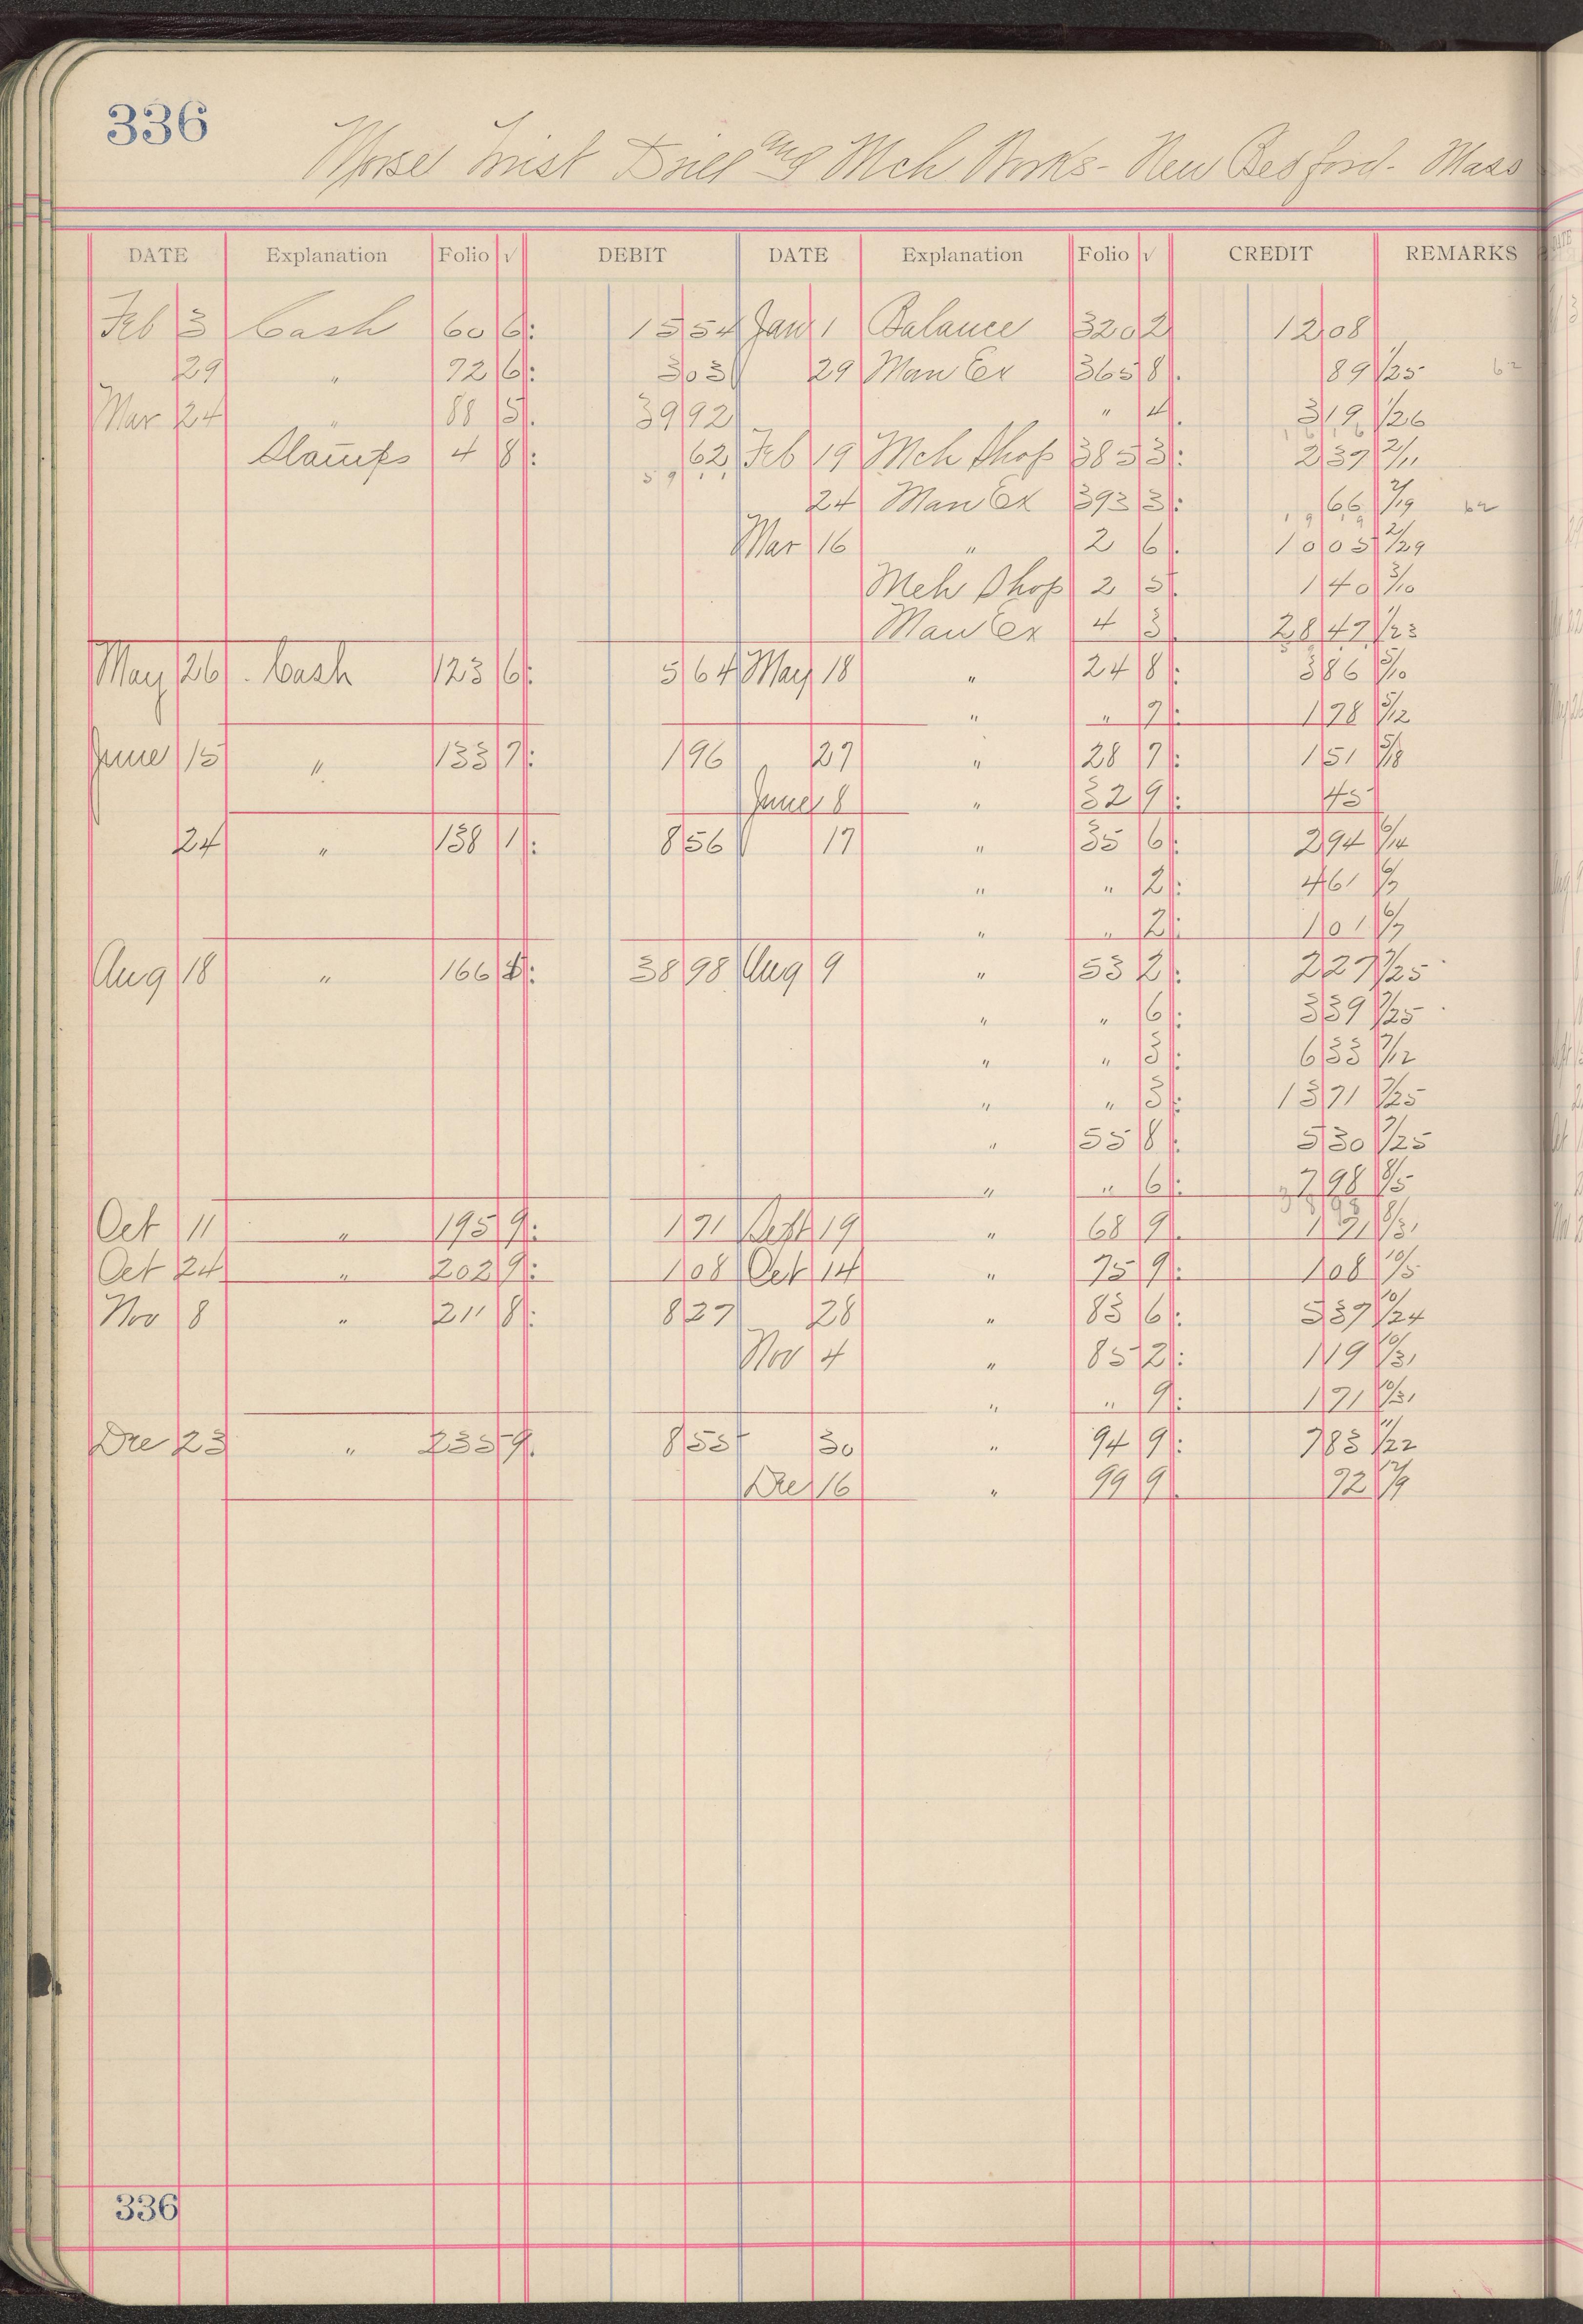 336
Morse Twist Drill and Mch Works - New Bedford - Mass
DATE Explanation Folio √ DEBIT DATE Explanation Folio √ CREDIT REMARKS
Feb 3 Cash 60 6: 15 54 Jan 1 Balance 320 2 12 08
29 " 72 6: 3 03 29 Man Ex 365 8. 89 1/25 62
Mar 24 " 88 5. 39 92 " 4. 3 19 1/26
Stamps 4 8: 62 Feb 19 Mch Shop 385 3: 2 37 2/11
24 Man Ex 393 3: 66 2/19 62
Mar 16 " 2 6. 10 05 2/29
Mch Shop 2 5. 1 40 3/10
Man Ex 4 3. 28 47 1/23
May 26 Cash 123 6: 5 64 May 18 " 24 8: 3 86 5/10
" " 7: 1 78 5/12
June 15 " 133 7: 1 96 27 " 28 7: 1 51 5/18
June 8 " 32 9: 45
24 " 138 1: 8 56 17 " 35 6: 2 94 6/14
" " 2: 4 61 6/7
" " 2: 1 01 6/7
Aug 18 " 166 : 38 98 Aug 9 " 53 2: 2 27 7/25
" " 6: 3 39 7/25
" " 3: 6 33 7/12
" " 3: 13 71 7/25
" 55 8: 5 30 7/25
" " 6: 7 98 8/5
Oct 11 " 195 9: 1 71 Sept 19 " 68 9. 1 71 8/31
Oct 24 " 202 9: 1 08 Oct 14 " 75 9: 1 08 10/5
Nov 8 " 211 8: 8 27 28 " 83 6: 5 37 10/24
Nov 4 " 85 2: 1 19 10/31
" " 9: 1 71 10/31
Dec 23 " 235 9. 8 55 30 " 94 9: 7 83 11/22
Dec 16 " 99 9. 72 12/9
336